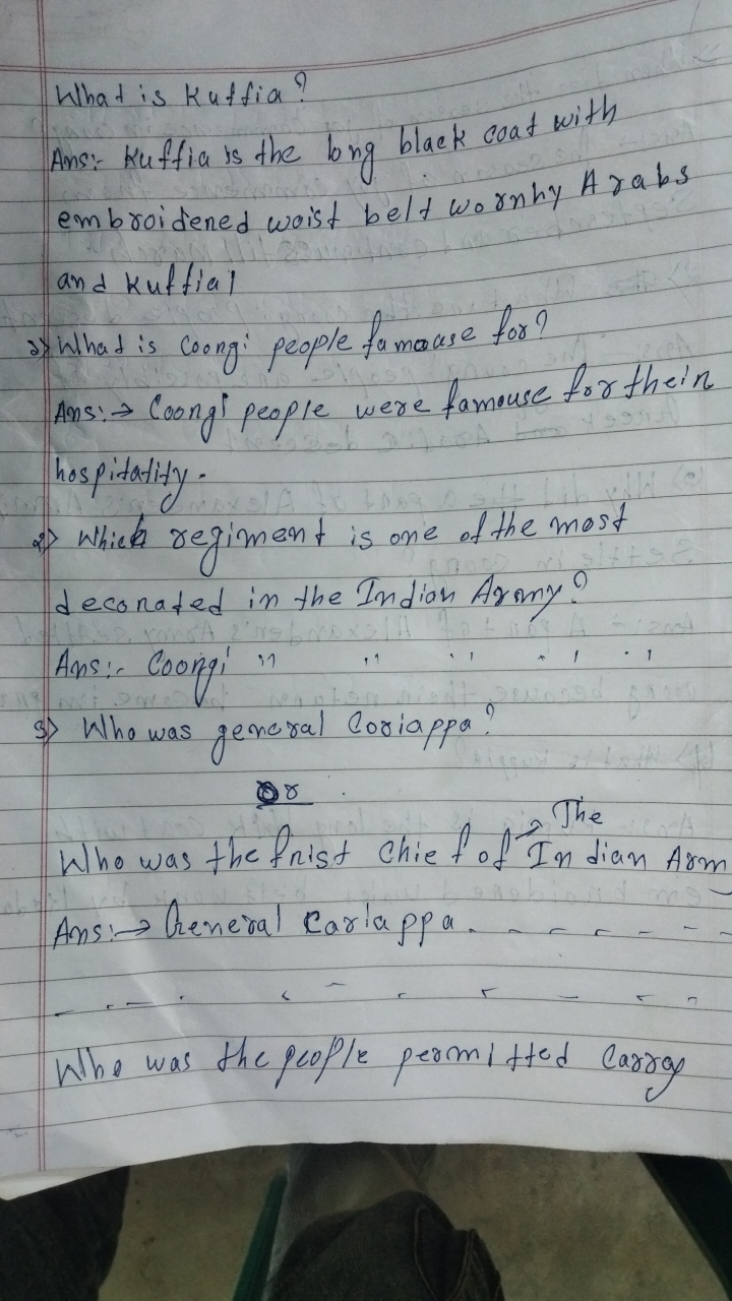 What is Kuffia?
Ans:- Kuffia is the long black coat with
embroidened waist belt wornby Arabs
and Kuffial
What is Coongi people famouse for?
Ans:→ Coongi people were famouse for thein
hospitality.
2) Which regiment is one of the most
deconated in the Indian Aromy?
Ans:- Coongi " " " " "
3) Who was general Coriappa?
Or
→ The
Who was the frist Chief of Indian Arm
Ans:→ General Cariappa. - - - - - -
- - - - - - - - - -
Who was the people permitted Carroy